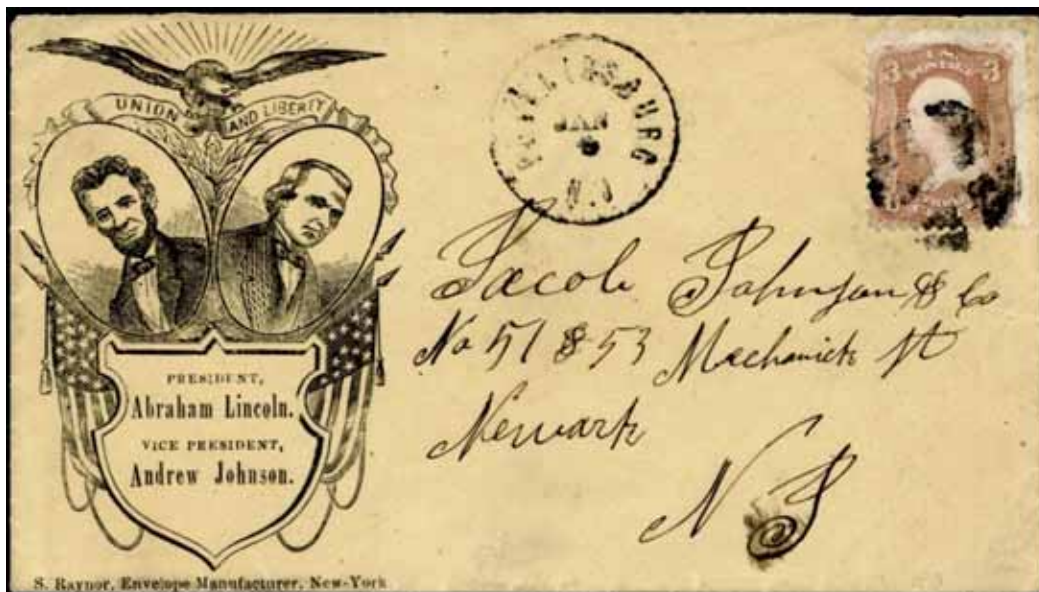 UNION AND LIBERTY
PRESIDENT,
Abraham Lincoln.
VICE PRESIDENT,
Andrew Johnson.
S. Raynor, Envelope Manufacturer, New-York
JAN
3 3
Jacob Johnson & Co
No 51 & 53 Mechanick St
Newark
N J